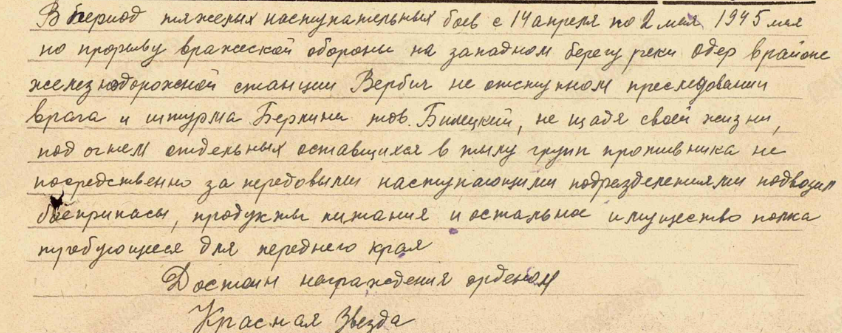 В период тяжелых наступательных боев с 14 апреля по 2 мая 1945 мая
по прорыву вражеской обороны на западном берегу реки Одер в районе
железнодорожной станции Вербич не отступном преследовании
врага и штурма Берлина тов. Билецкий, не щадя своей жизни,
под огнем отдельных оставшихся в тылу групп противника не
посредственно за передовыми наступающими подразделениями подвозил
боеприпасы, продукты питания и остальное имущество полка
требующееся для переднего края
Достоин награждения орденом
Красная Звезда